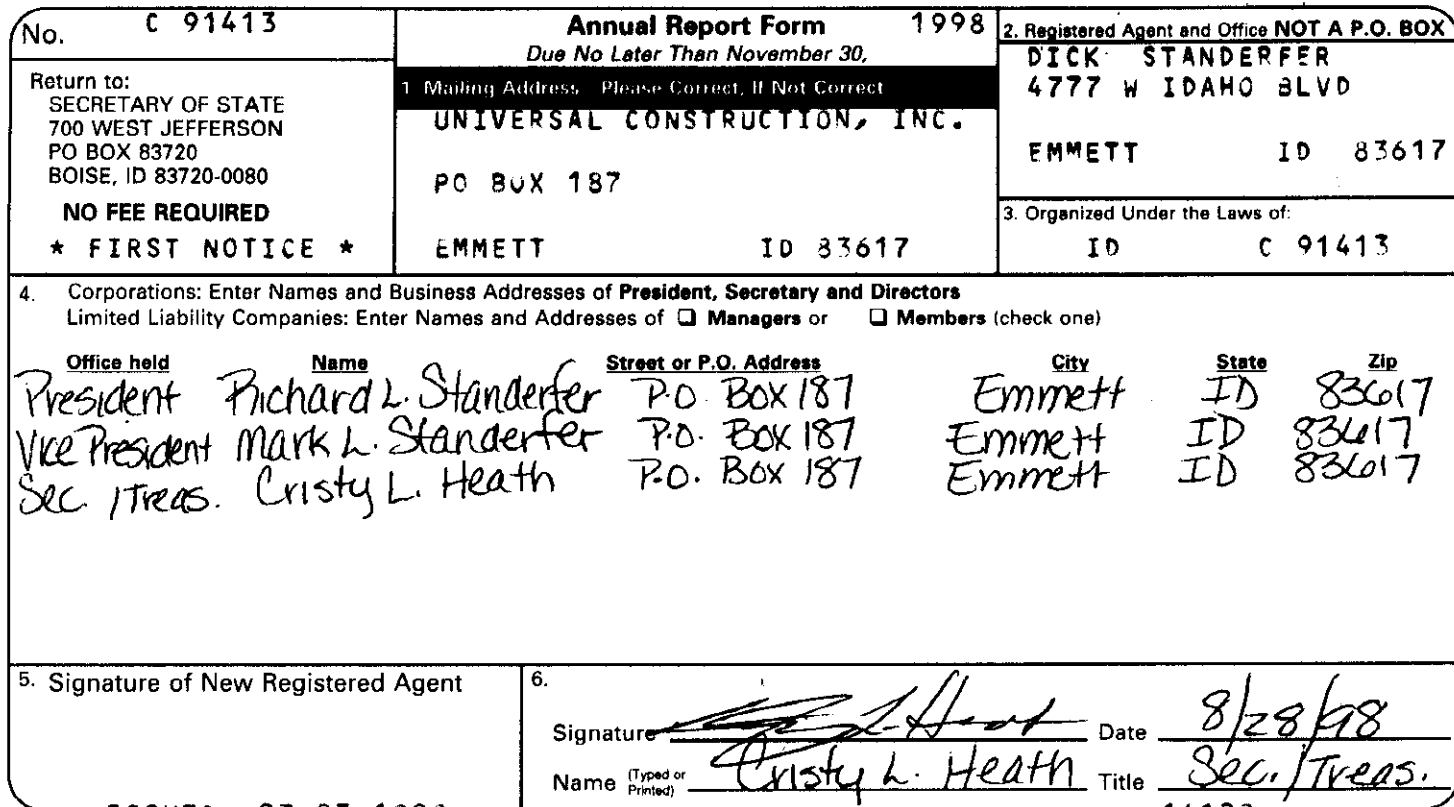 No. C 91413
Return to:
SECRETARY OF STATE
700 WEST JEFFERSON
PO BOX 83720
BOISE, ID 83720-0080
NO FEE REQUIRED
* FIRST NOTICE *
Annual Report Form 1998
Due No Later Than November 30,
1 Mailing Address Please Correct, If Not Correct
UNIVERSAL CONSTRUCTION, INC.
PO BOX 187
EMMETT ID 83617
2. Registered Agent and Office NOT A P.O. BOX
DICK STANDERFER
4777 W IDAHO BLVD
EMMETT ID 83617
3. Organized Under the Laws of:
ID C 91413
4. Corporations: Enter Names and Business Addresses of President, Secretary and Directors
Limited Liability Companies: Enter Names and Addresses of ☐ Managers or ☐ Members (check one)
Office held Name Street or P.O. Address City State Zip
President Richard L. Standerfer P.O. Box 187 Emmett ID 83617
Vice President Mark L. Standerfer P.O. Box 187 Emmett ID 83617
Sec. /Treas. Cristy L. Heath P.O. Box 187 Emmett ID 83617
5. Signature of New Registered Agent
6.
Signature L Heath Date 8/28/98
Name (Typed or Printed) Cristy L. Heath Title Sec. /Treas.